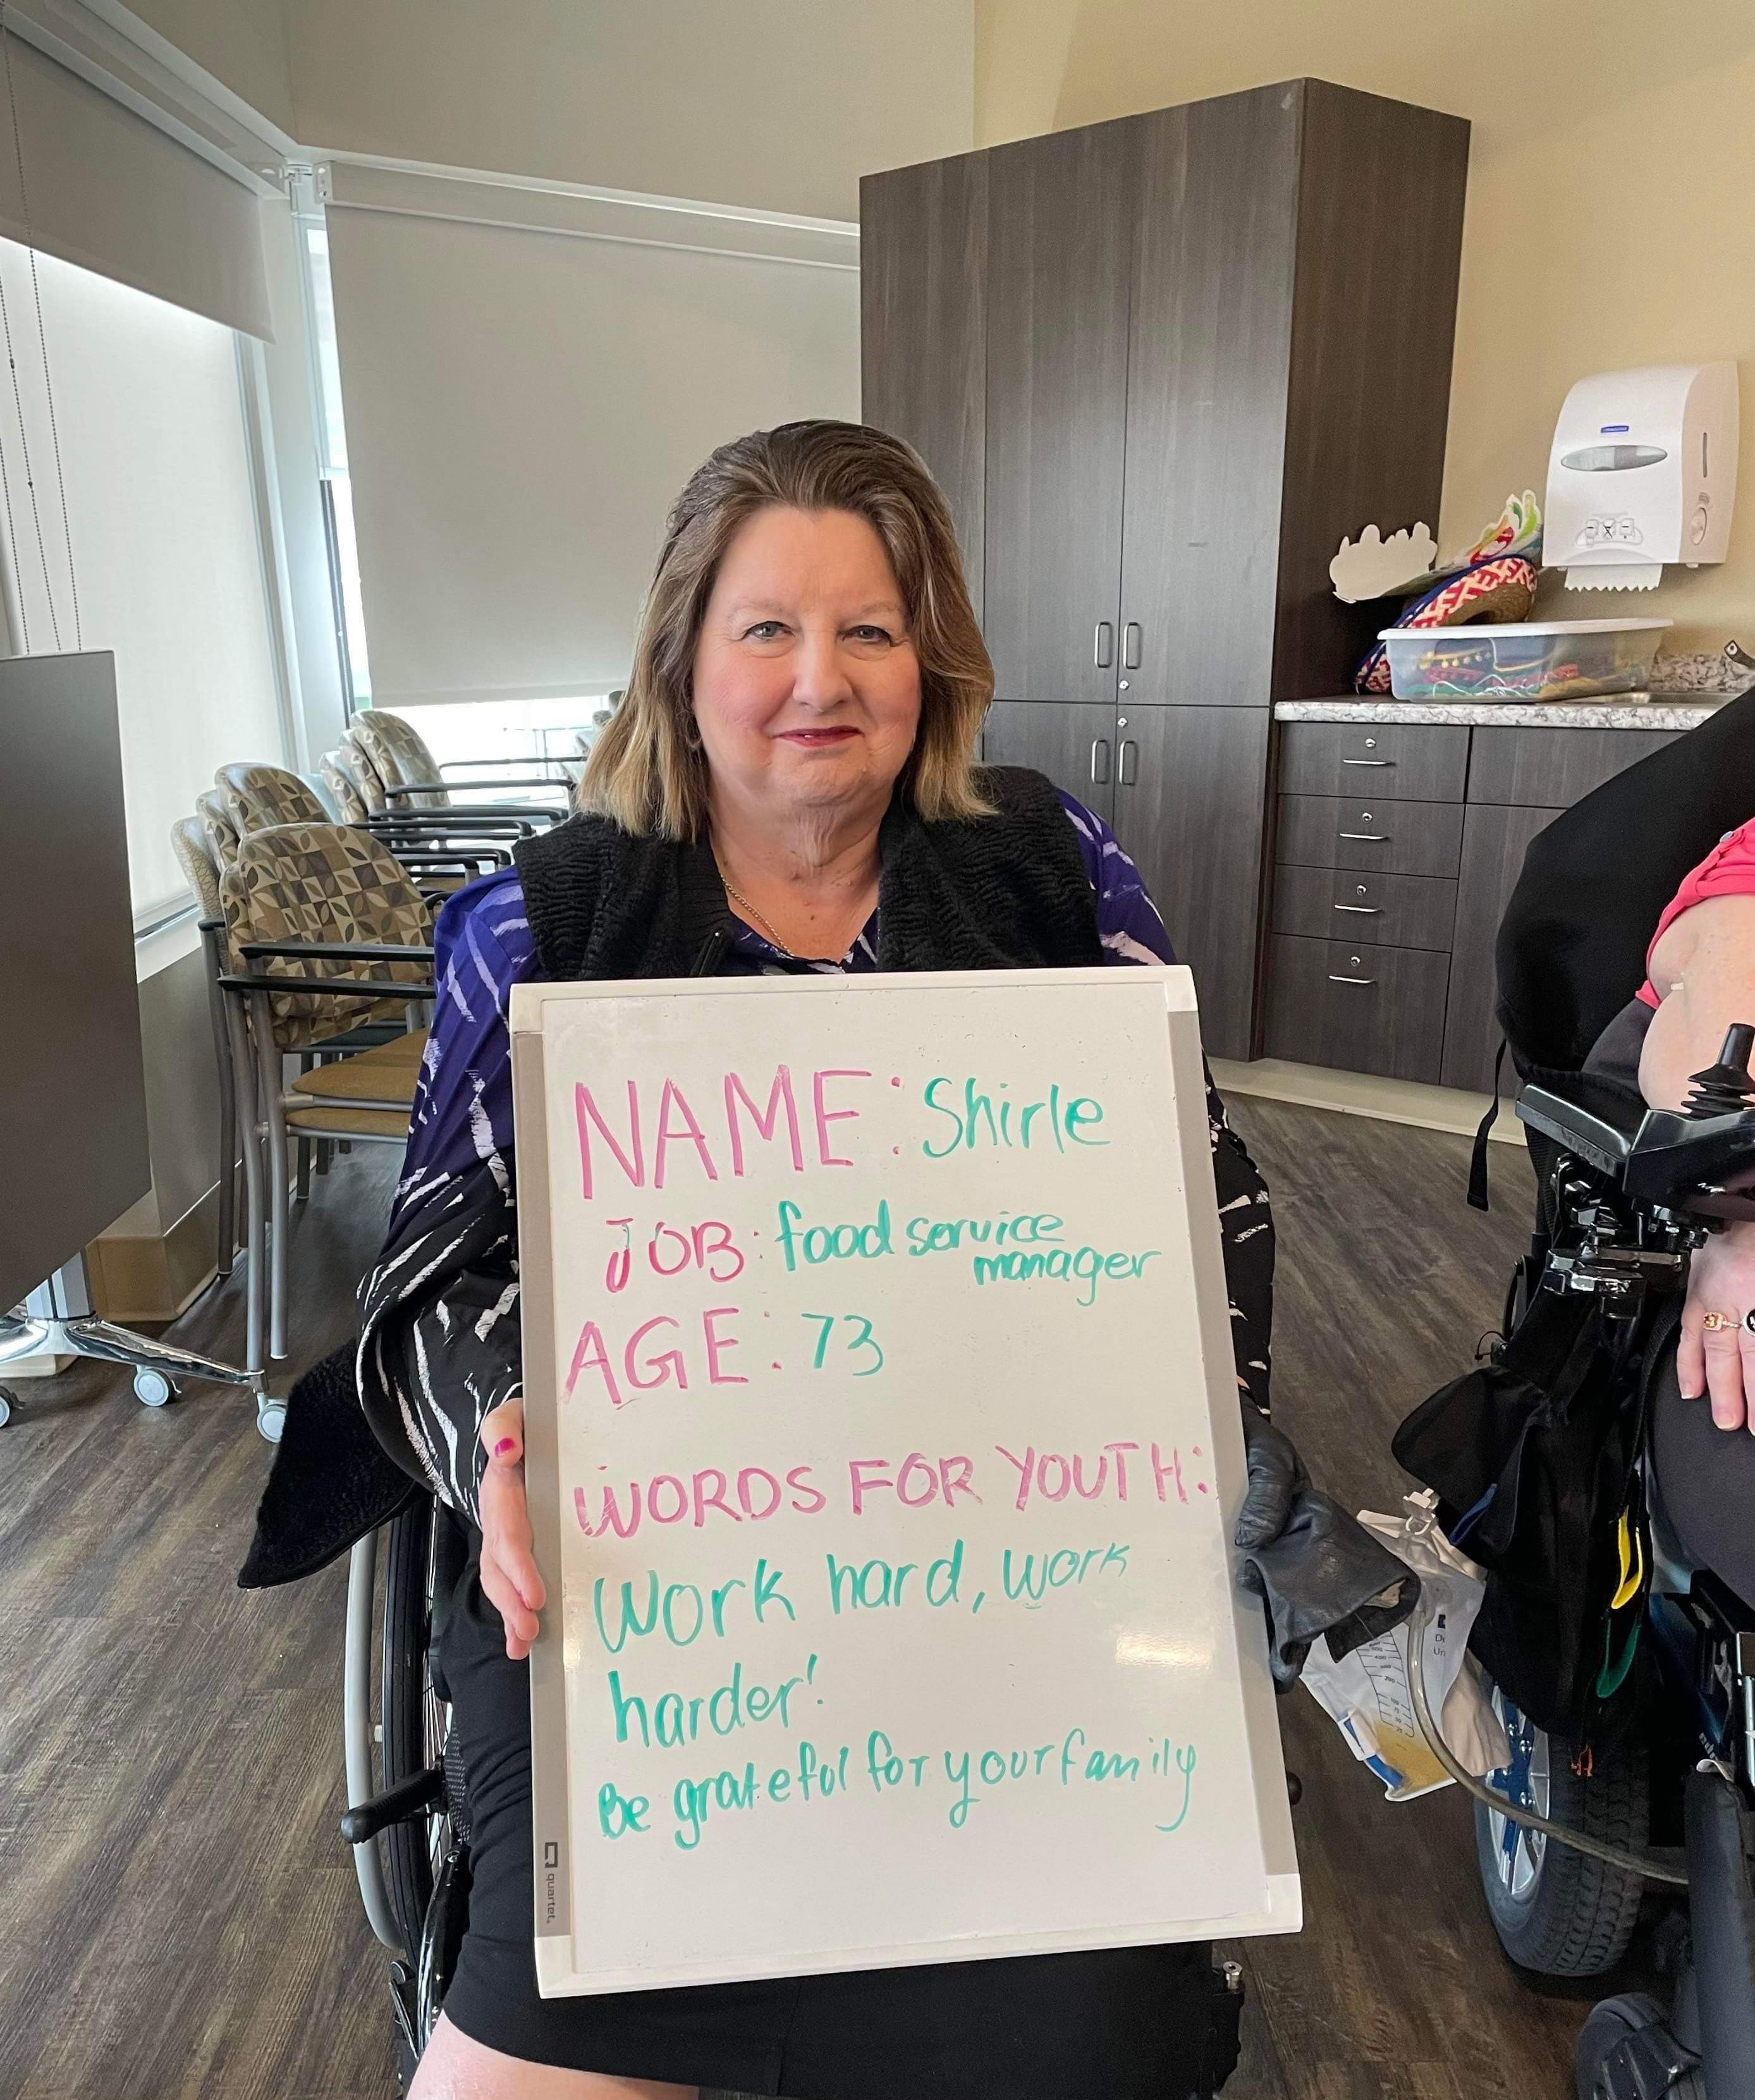 NAME: Shirle
JOB: food service
manager
AGE: 73
WORDS FOR YOUTH:
Work hard, work
harder!
Be grateful for your family
quartet